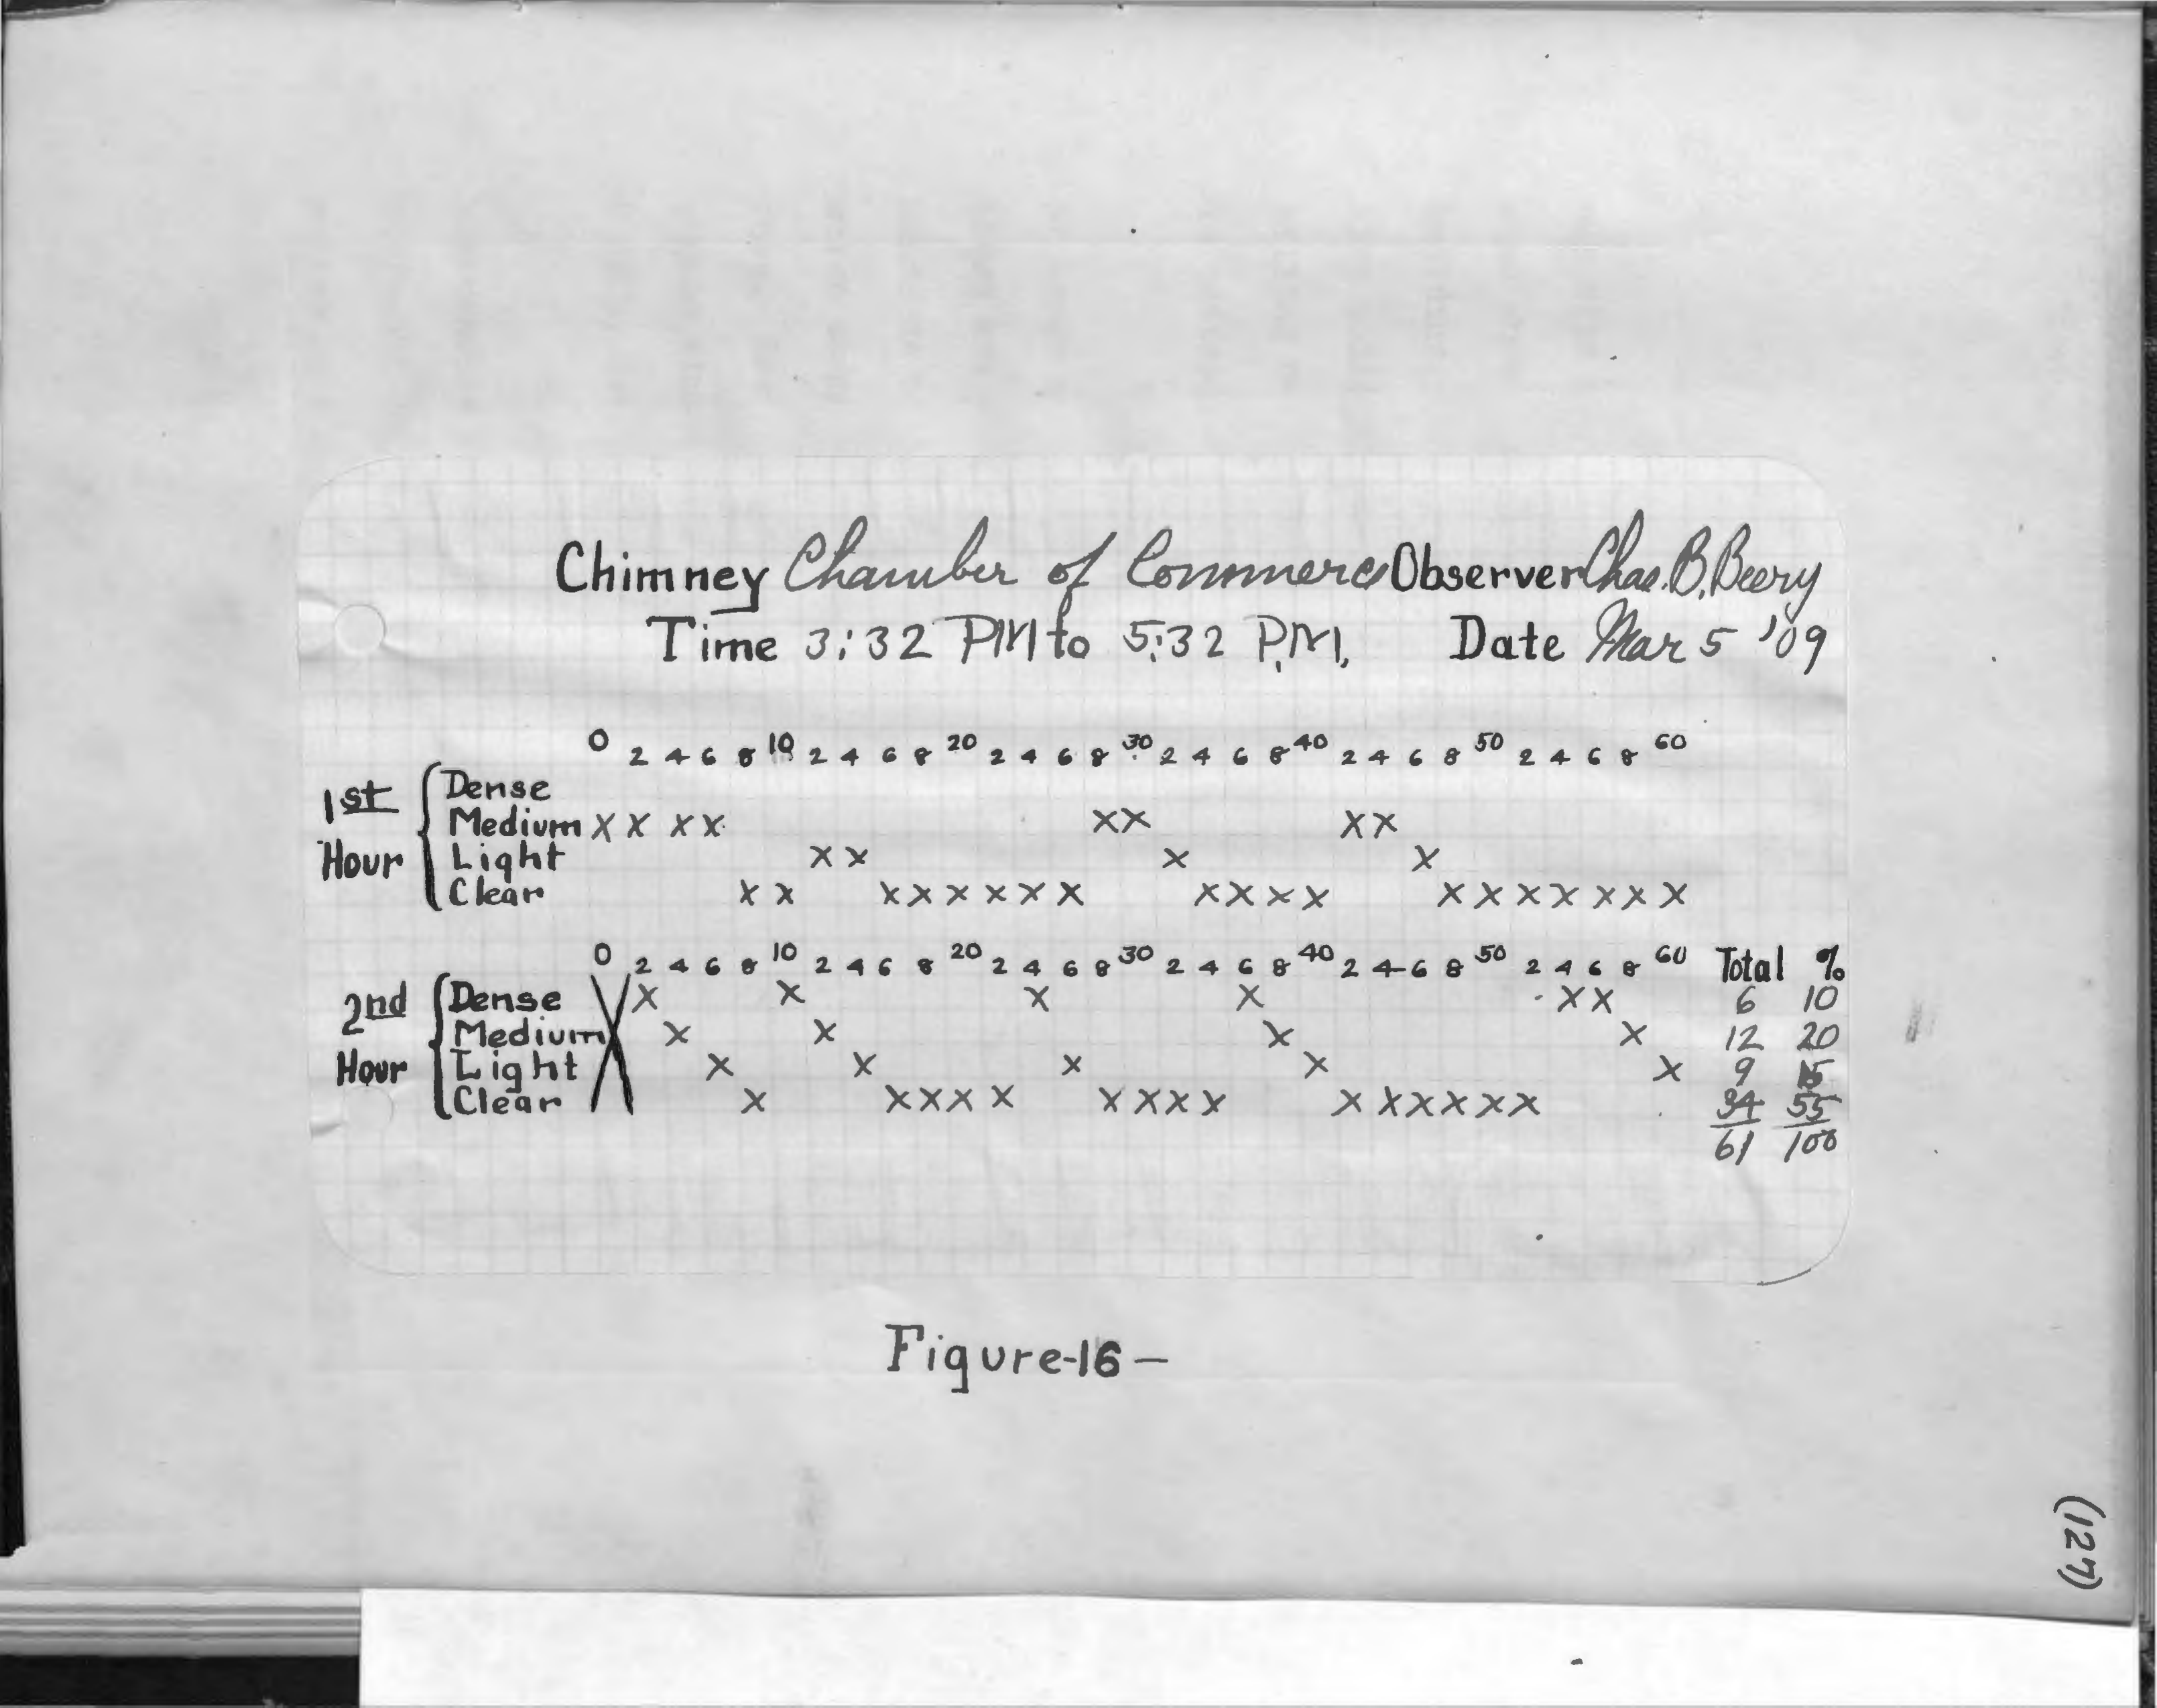 Chimney Chamber of Commerce Observer Chas. B. Beery
Time 3:32 PM to 5:32 P.M. Date Mar 5 '09
0 2 4 6 8 10 2 4 6 8 20 2 4 6 8 30 2 4 6 8 40 2 4 6 8 50 2 4 6 8 60
1st Hour
Dense
Medium X X X X X X X X
Light X X X X
Clear X X X X X X X X X X X X X X X X X X X
0 2 4 6 8 10 2 4 6 8 20 2 4 6 8 30 2 4 6 8 40 2 4 6 8 50 2 4 6 8 60 Total %
2nd Hour
Dense X X X X X X 6 10
Medium X X X X 12 20
Light X X X X X 9 15
Clear X X X X X X X X X X X X X X X 34 55
61 100
Figure-16-
(127)